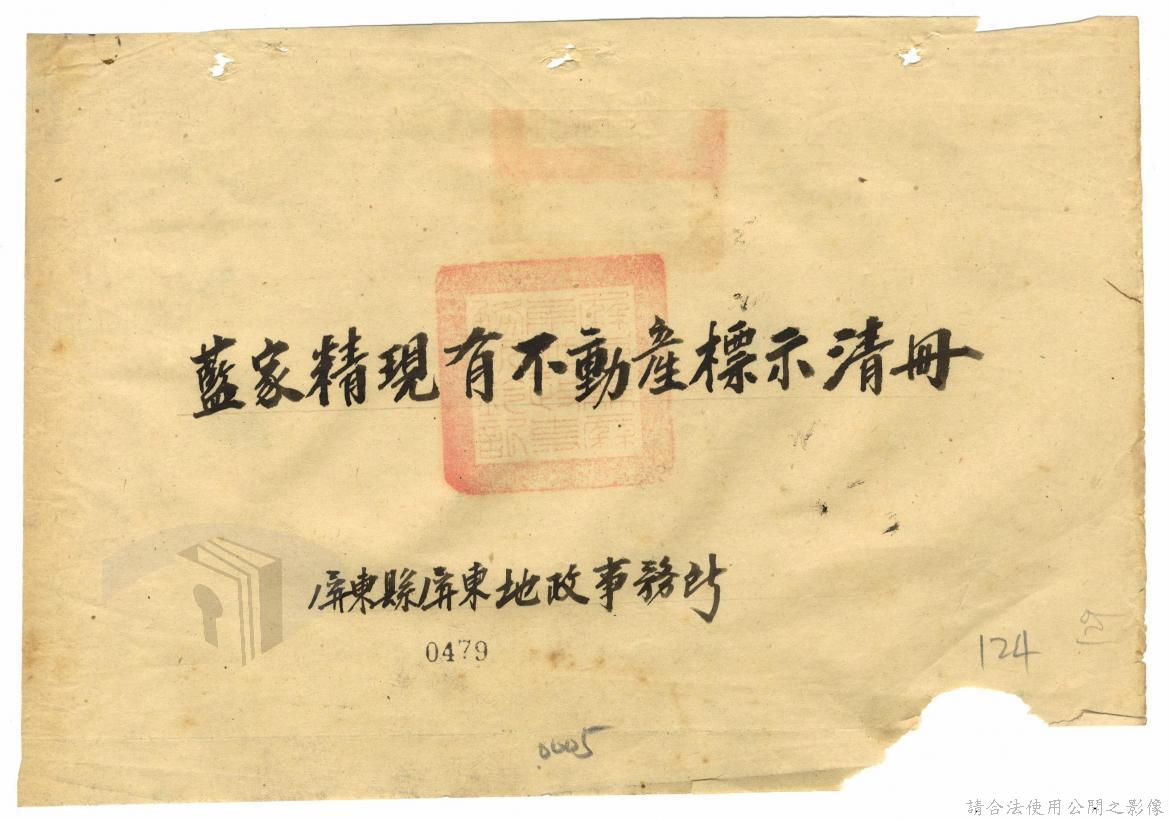 藍家精現有不動產標示清冊
屏東縣屏東地政事務所
0479
124
0005
請合法使用公開之影像